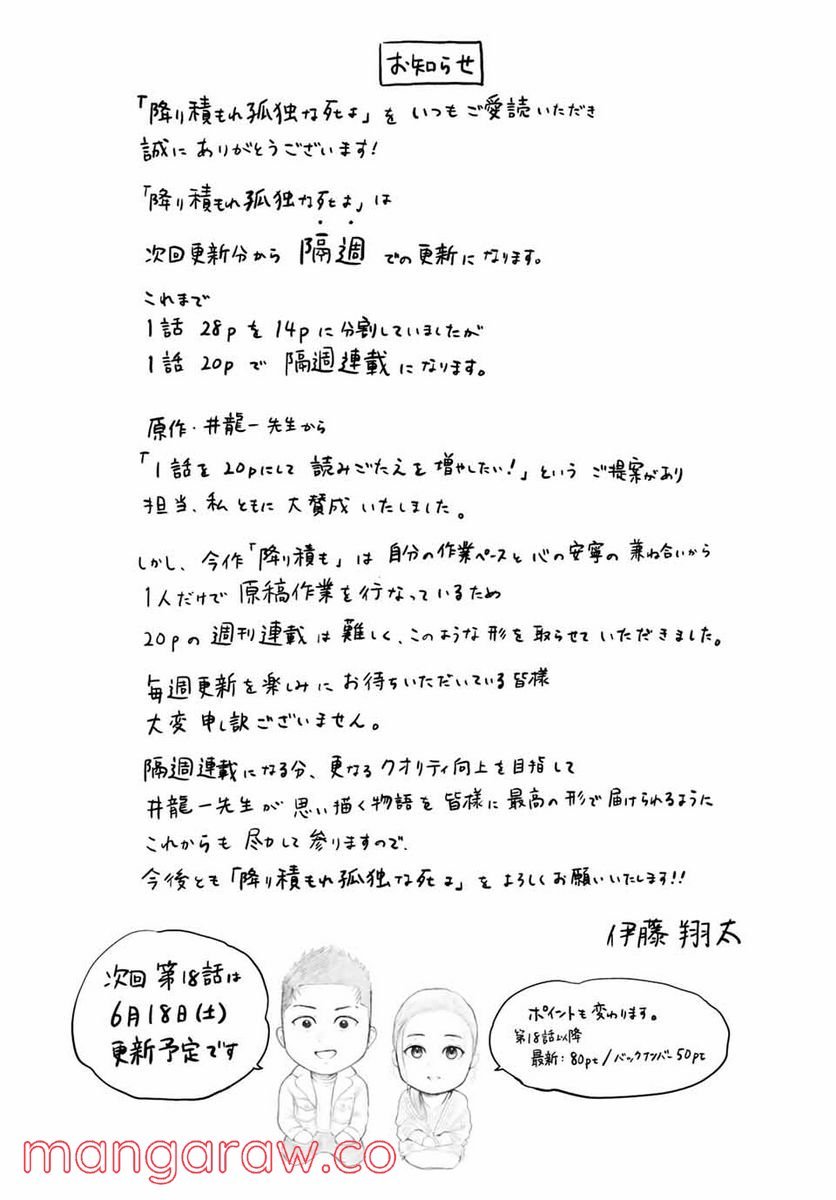 お知らせ
「降り積もれ孤独な死よ」を いつもご愛読いただき
誠に ありがとうございます!
「降り積もれ孤独な死よ」は
次回更新分から 隔週 での更新になります。
これまで
1話 28pを14pに分割していましたが
1話 20pで 隔週連載になります。
原作・井龍一先生から
「1話を20pにして 読みごたえを増やしたい!」という ご提案があり
担当、私ともに 大賛成いたしました。
しかし、今作「降り積も」は 自分の作業ペースと心の安寧の兼ね合いから
1人だけで 原稿作業を行なっているため
20pの週刊連載は難しく、このような形を取らせていただきました。
毎週更新を楽しみにお待ちいただいている皆様
大変申し訳ございません。
隔週連載になる分、更なるクオリティ向上を目指して
井龍一先生が 思い描く物語を皆様に最高の形で届けられるように
これからも 尽力して参りますので、
今後とも「降り積もれ孤独な死よ」を よろしくお願いいたします!!
伊藤 翔太
次回 第18話は
6月18日(土)
更新予定です
ポイントも変わります。
第18話以降
最新:80pt/バックナンバー50pt
mangaraw.co